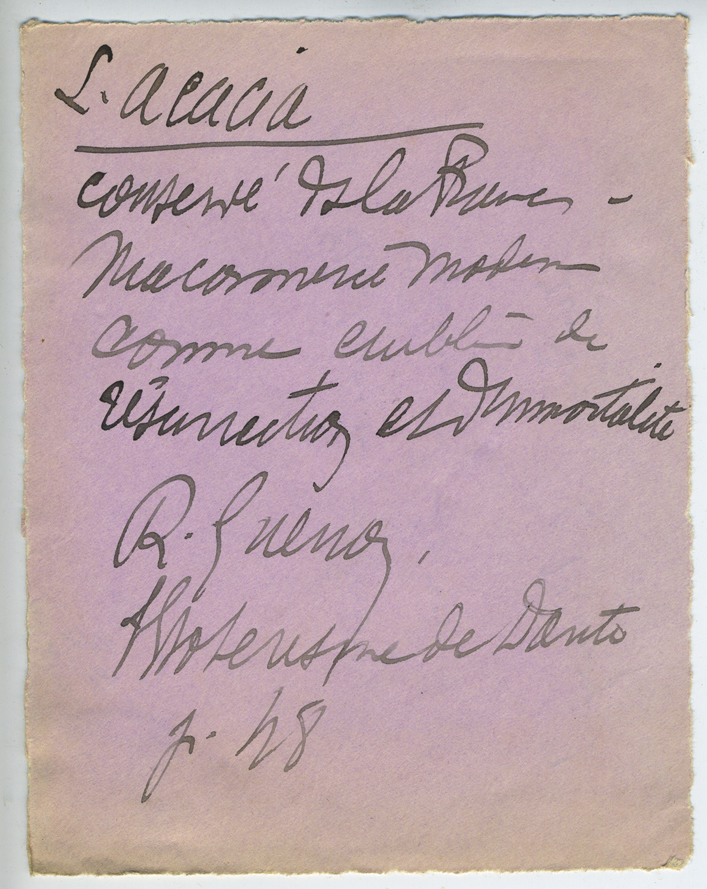 L. acacia
conservé ds la Franc -
Maconnerie Modern
comme emblème de
résurrection et d'immortalité
R. Guenon,
l'Esoterisme de Dante
p. 48